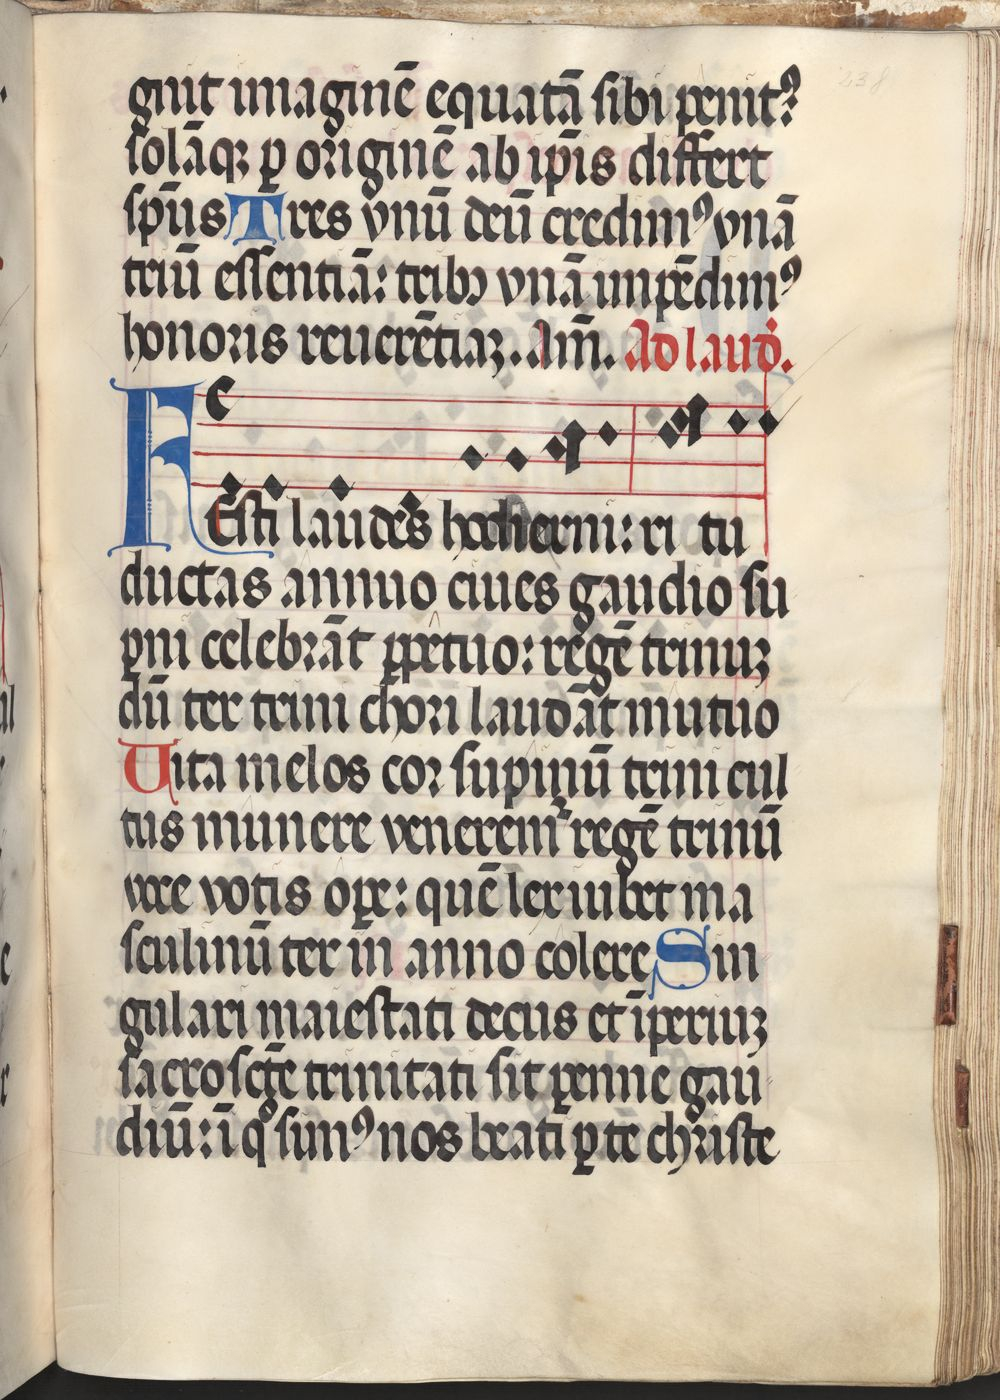 gnit imaginē equatā sibi penit⁹
solāqꝫ ꝑ originē ab ip̄is differt
sp̄us Tres vnū deū credim⁹ vnā
triū essentiā: tribꝫ vnā inpēdim⁹
honoris reuerētiaꝫ. Am̄. Ad laud̄.
FEsti laudes hodierni: ri tu
ductas annuo ciues gaudio su
ꝑni celebrāt ꝑpetuo: regē trinuꝫ
dū ter trini chori laudāt mutuo
Vita melos cor supinū trini cul
tus munere veneremʳ regē trinū
vere votis oꝑe: quē lex iubet ma
sculinū ter in anno colere Sin
gulari maiestati decus et īperiuꝫ
sacrosct̄e trinitati sit ꝑenne gau
diū: ī qᵒ sim⁹ nos beati ꝑ te christe